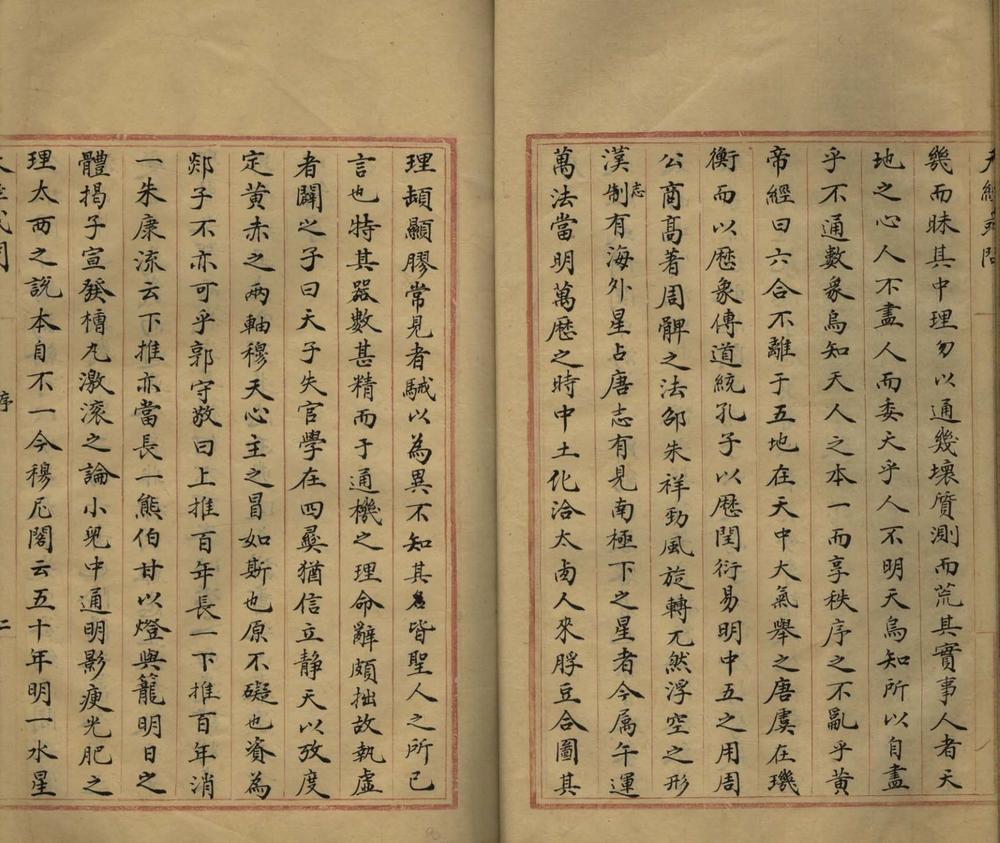 天經或問
幾而昧其中理勿以通幾壞質測而荒其實事人者天
地之心人不盡人而委天乎人不明天烏知所以自盡
乎不通數象烏知天人之本一而享秩序之不亂乎黃
帝經曰六合不離于五地在天中大氣舉之唐虞在璣
衡而以歷象傳道統孔子以歷閏衍易明中五之用周
公商高著周髀之法邵朱祥勁風旋轉兀然浮空之形
漢制志有海外星占唐志有見南極下之星者今属午運
萬法當明萬歷之時中土化洽太西人來脬豆合圖其
理頗顯膠常見者駴以為異不知其為皆聖人之所已
言也特其器數甚精而于通機之理命辭頗拙故執虛
者闢之子曰天子失官學在四夷猶信立静天以攷度
定黃赤之兩軸穆天心主之冒如斯也原不礙也資為
郯子不亦可乎郭守敬曰上推百年長一下推百年消
一朱康流云下推亦當長一熊伯甘以燈與籠明日之
體揭子宣發槽丸激滚之論小兒中通明影瘦光肥之
理太西之說本自不一今穆尼閣云五十年明一水星
序
二